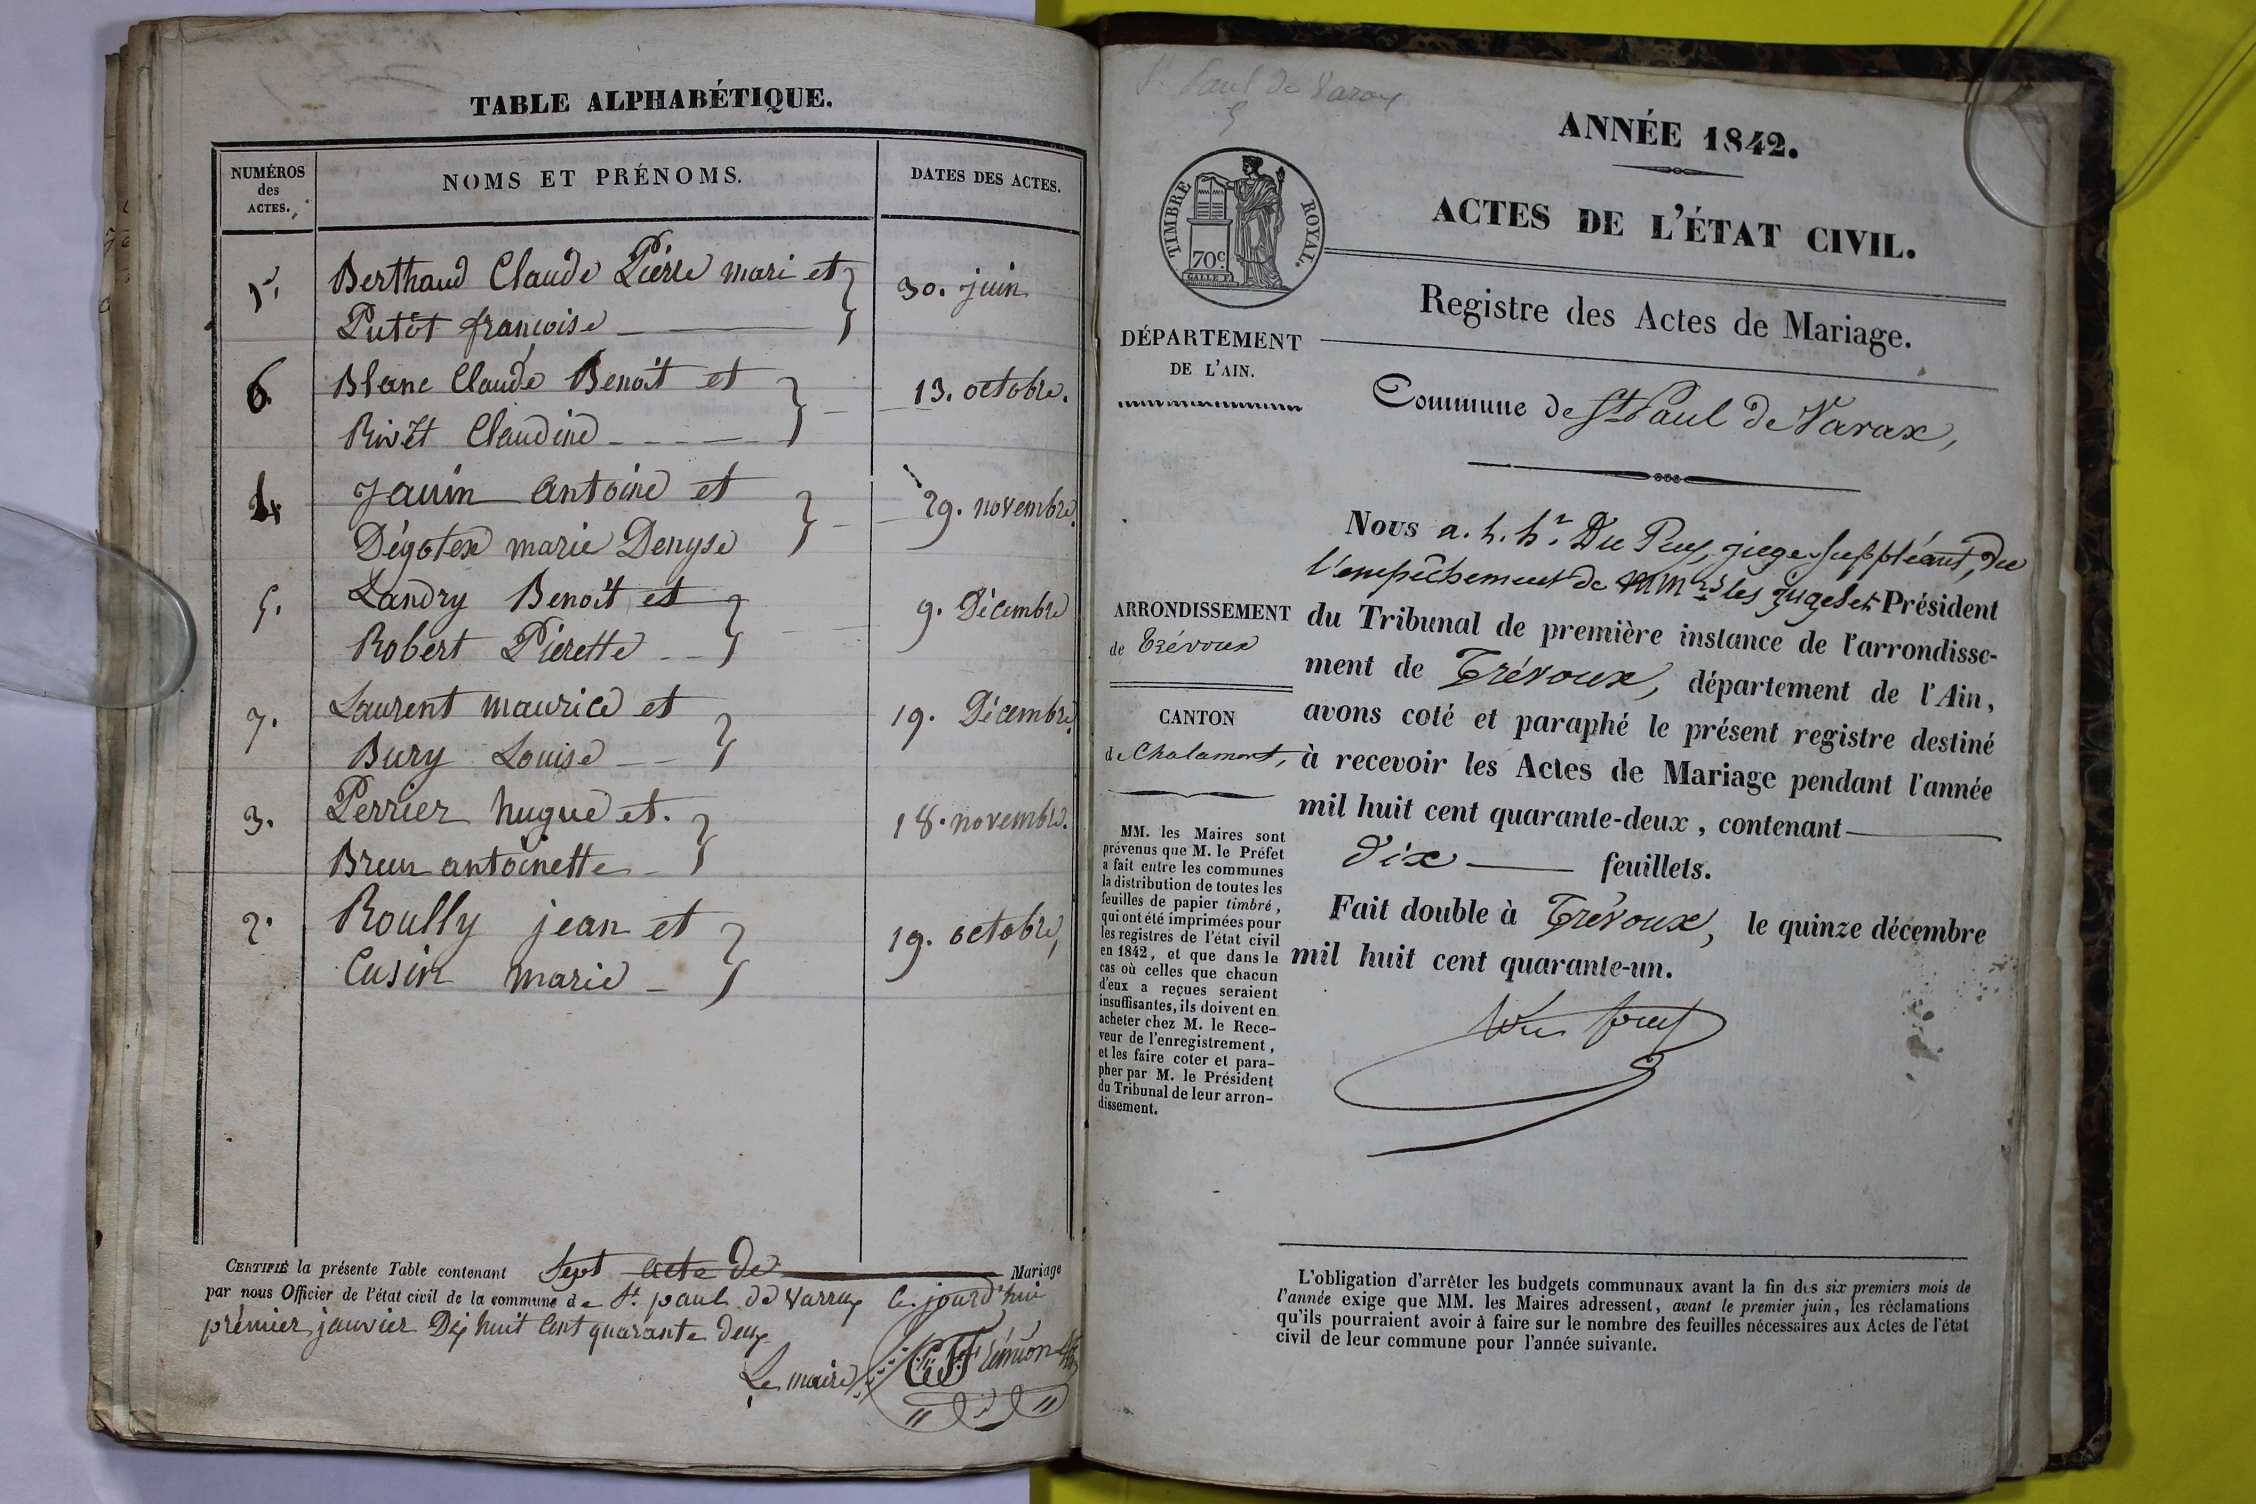 TABLE ALPHABÉTIQUE.
NUMÉROS
des
ACTES.
NOMS ET PRÉNOMS.
DATES DES ACTES.
1er. Berthaud Claude Pierre mari et 30. juin
Putôt françoise
6. Blanc Claude Benoît et 13. octobre.
Rivet Claudine
4. Janin antoine et 29. novembre.
Dégotex marie Denyse
5. Landry Benoît et 9. Décembre
Robert Pierette
7. Laurent maurice et 19. Décembre.
Bury Louise
3. Perrier hugue et. 18. novembre.
Brun antoinette
2. Roully jean et 19. octobre,
Cusin marie
CERTIFIÉ la présente Table contenant Sept acte de Mariage
par nous Officier de l'état civil de la commune de St. paul de Varrax ce jourd'hui
prémier janvier Dix huit Cent quarante deux
Le maire
St Paul de Varax
5
TIMBRE ROYAL.
70c
GALLE F.
ANNÉE 1842.
ACTES DE L'ÉTAT CIVIL.
Registre des Actes de Mariage.
DÉPARTEMENT
DE L'AIN.
Commune de St Paul de Varax,
ARRONDISSEMENT
de Trévoux
CANTON
de Chalamont,
MM. les Maires sont
prévenus que M. le Préfet
a fait entre les communes
la distribution de toutes les
feuilles de papier timbré,
qui ont été imprimées pour
les registres de l'état civil
en 1842, et que dans le
cas où celles que chacun
d'eux a reçues seraient
insuffisantes, ils doivent en
acheter chez M. le Rece-
veur de l'enregistrement,
et les faire coter et para-
pher par M. le Président
du Tribunal de leur arron-
dissement.
Nous a. h. hr. Du Puy, juge suppléant, vu
l'empêchement de MMrs les juges et Président
du Tribunal de première instance de l'arrondisse-
ment de Trévoux, département de l'Ain,
avons coté et paraphé le présent registre destiné
à recevoir les Actes de Mariage pendant l'année
mil huit cent quarante-deux, contenant
dix feuillets.
Fait double à Trévoux, le quinze décembre
mil huit cent quarante-un.
Du Puy
L'obligation d'arrêter les budgets communaux avant la fin des six premiers mois de
l'année exige que MM. les Maires adressent, avant le premier juin, les réclamations
qu'ils pourraient avoir à faire sur le nombre des feuilles nécessaires aux Actes de l'état
civil de leur commune pour l'année suivante.